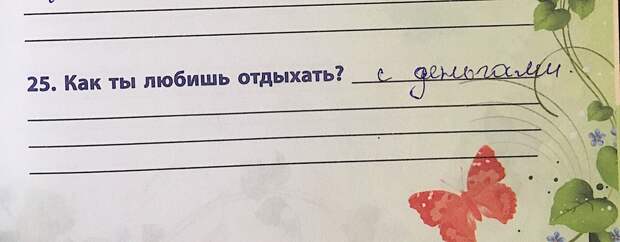 25. Как ты любишь отдыхать? с деньгами.